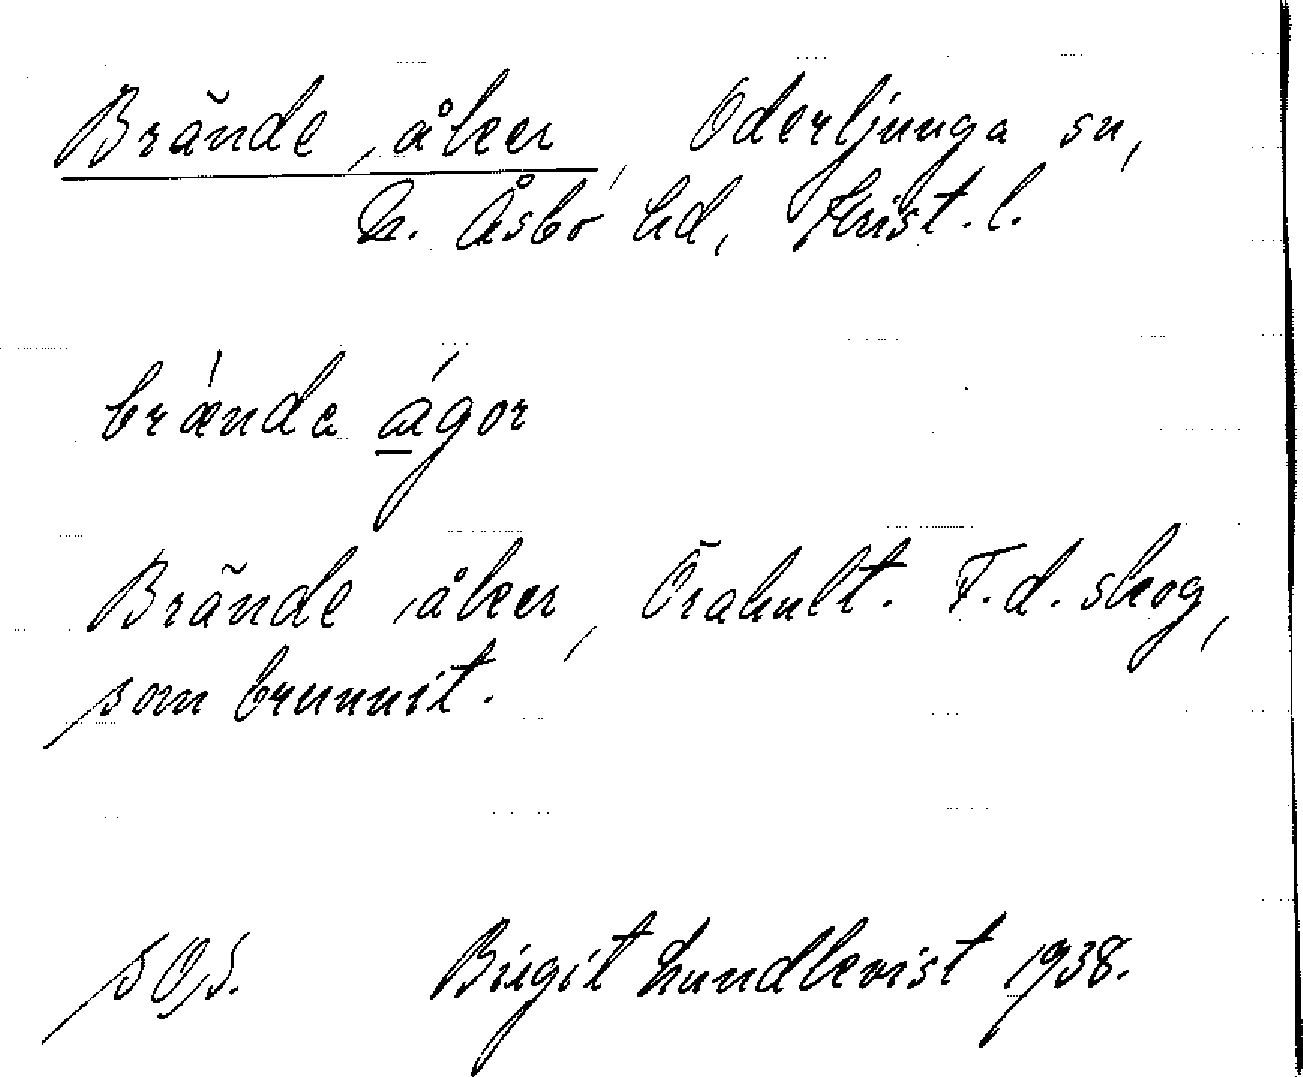 Brände åker, Oderljunga sn,
N. Åsbo hd, Krist. l.
brænde ågor
Brände åker, Örahult. F.d. skog,
som brunnit.
sOs. Birgit Lundkvist 1938.